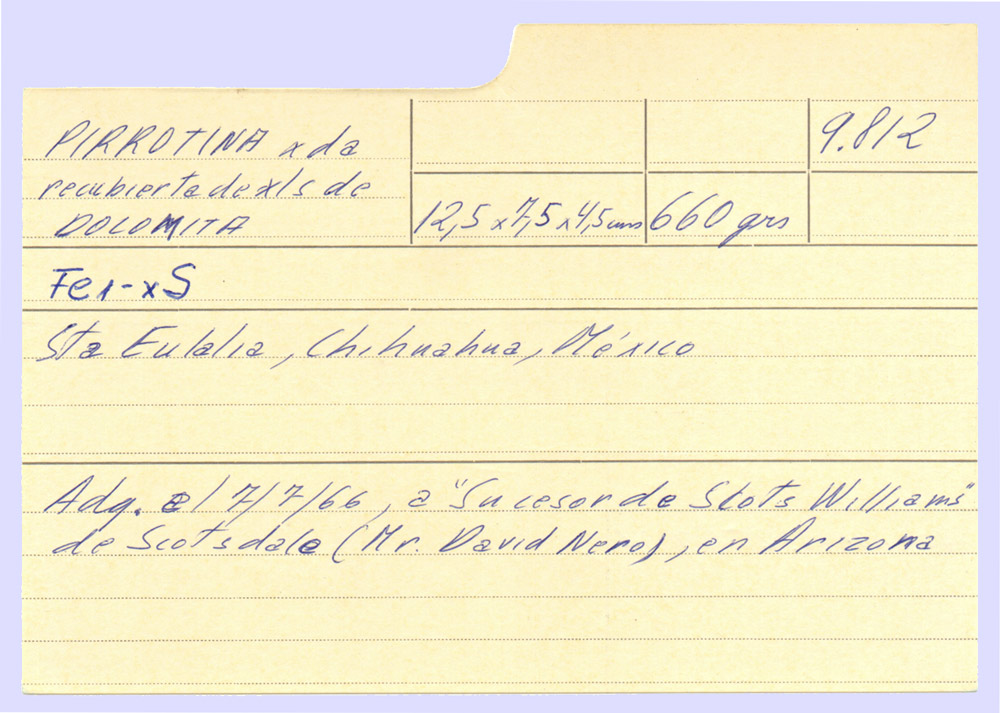 9.812
PIRROTINA xda
recubierta de xls de
DOLOMITA
12,5 x 7,5 x 4,5 cms 660 grs
Fe1-xS
Sta Eulalia, Chihuahua, México
Adq. el 7/7/66, a "Sucesor de Stots Williams"
de Scotsdale (Mr. David Nero), en Arizona